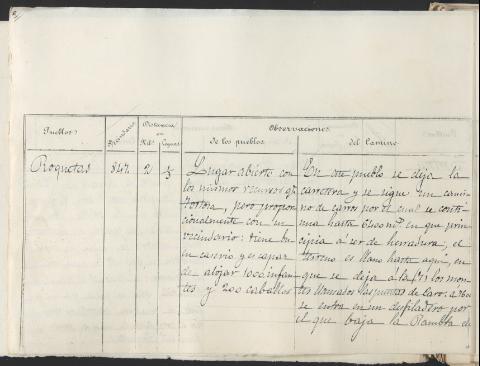 Pueblos
Vecindario
Distancia
en
Observaciones
De los pueblos
del Camino
Roquetas 847. 2 1/3
Lugar abierto con
los mismos recursos qe
Tortosa, pero proporcionalmente con su
vecindario: tiene buen caserío y es capaz
de alojar 1000 infantes
y 200 caballos
En este pueblo se deja la
carretera y se sigue un camino
de carros por el cual se continua hasta
en que principia á ser de herradura; el
terreno es llano hasta aquí, en
que se deja á la los montes llamados
de Caro: á
se entra en un desfiladero por
el que baja la Rambla de